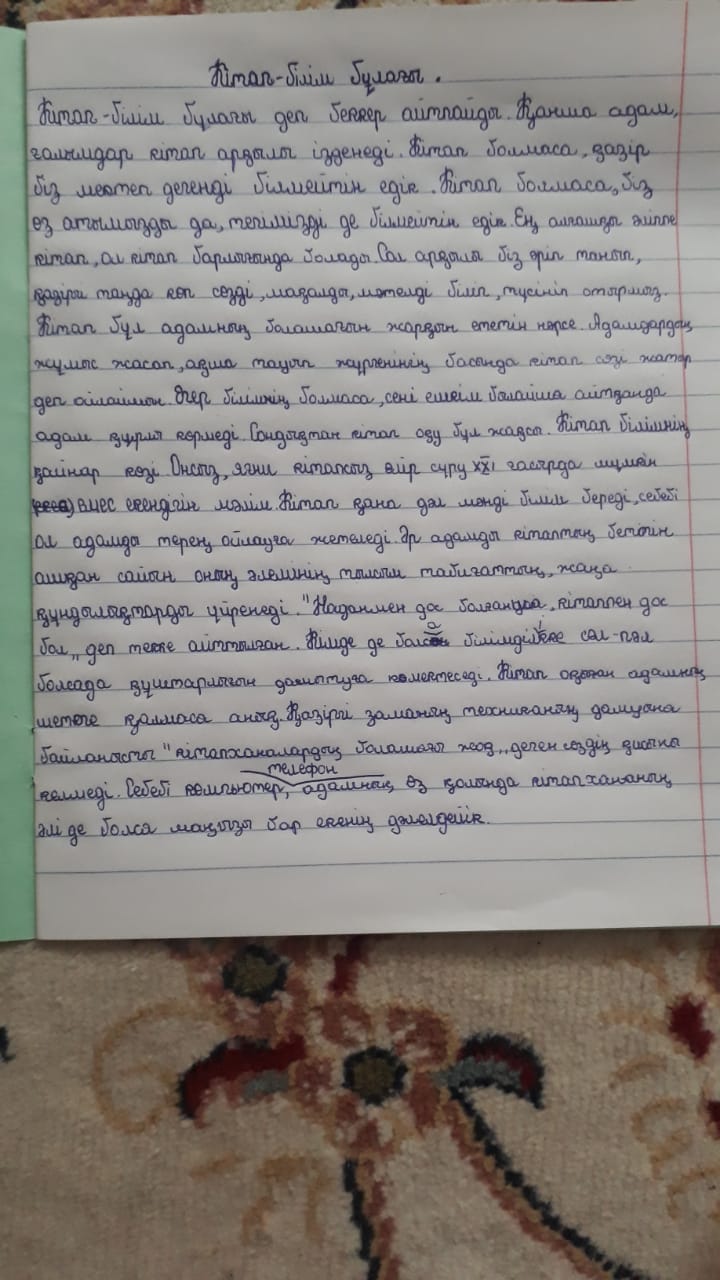 Кітап-білім бұлағы.
Кітап-білім бұлағы деп беккер айтпайды. Қанша адам,
ғалымдар кітап арқылы ізденеді. Кітап болмаса, қазір
біз мектеп дегенді білмейтін едік. Кітап болмаса, біз
өз атымызды да, тегімізді де білмейтін едік. Ең алғашқы әліппе
кітап, ал кітап барлығында болады. Сол арқылы біз әріп танып,
қазіргі таңда көп сөзді, мақалды, мәтелді біліп, түсініп отырмыз.
Кітап бұл адамның болашағын жарқын ететін нәрсе. Адамдардың
жұмыс жасап, ақша тауып жүргенінің басында кітап сөзі жатыр
деп ойлаймын. Егер білімің болмаса, сені ешкім былайша айтқанда
адам құрлы көрмеді. Сондықтан кітап оқу бұл жақсы. Кітап білімнің
қайнар көзі. Онсыз, яғни кітапсыз өмір сүру XXI ғасырда мүмкін
емес екендігін мәлім. Кітап қана дәл мәнді білім береді, себебі
ол адамды терең ойлауға жетеледі. Әр адамды кітаптың бетінін
ашқан сайын оның әлемінің тылсым табиғаттың, жаңа
құндылықтарды үйренеді. "Наданмен дос болғанша, кітаппен дос
бол" деп текке айтылған. Кімде де білімділікке сәл-пәл
болсада құштарлығын көмектеседі. Кітап оқыған адамның
шетте қалмаса анық. Қазіргі заманың техниканың дамуына
байланысты "кітапханалардың болашағы жоқ" деген сөздің қисыны
телефон
келмеді. Себебі компьютер, адамның өз қолында кітапхананың
әлі де болса маңызы бар екенің дәлелдейік.